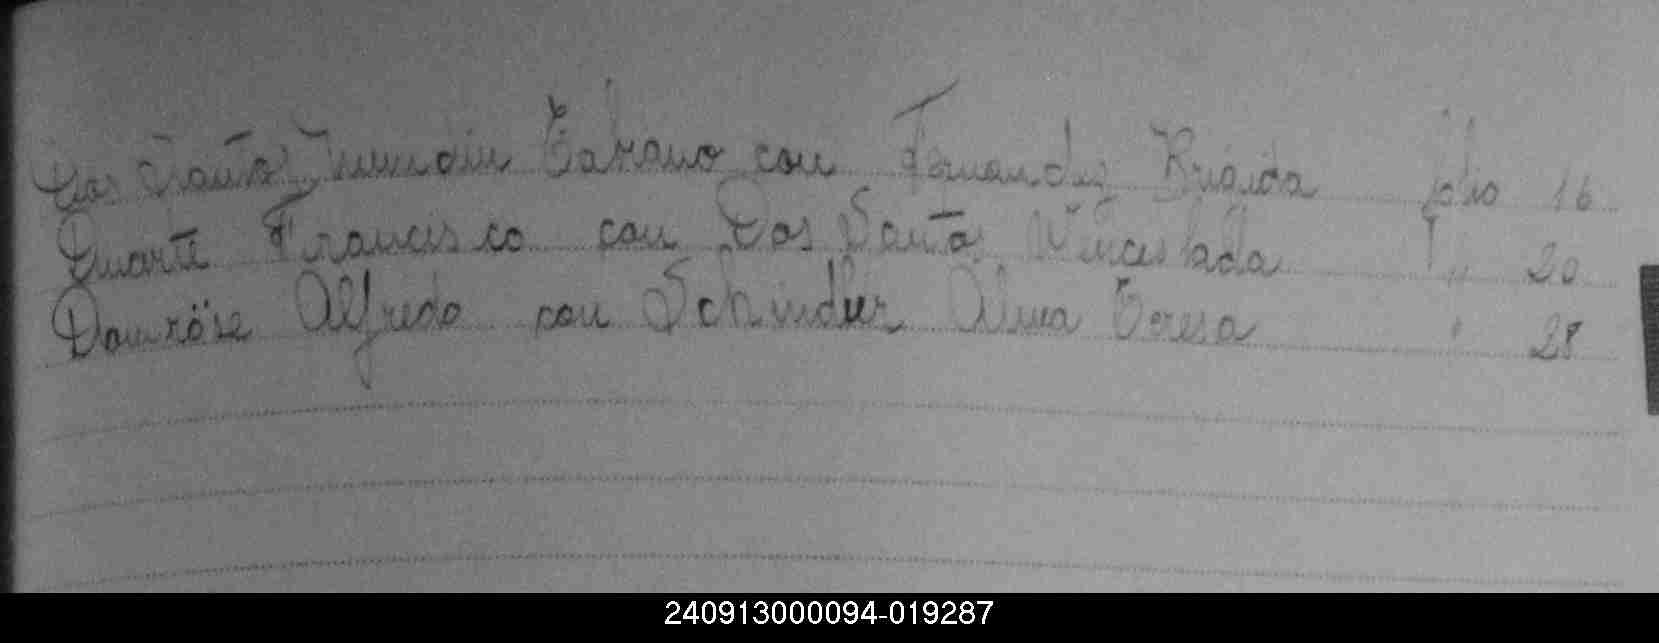 Dos Santos Cabrano con Fernandez Brigida folio 16
Duarte Francisco con Dos Santos Winceslada " 20
Damröse Alfredo con Schindler Alma Teresa " 28
240913000094-019287